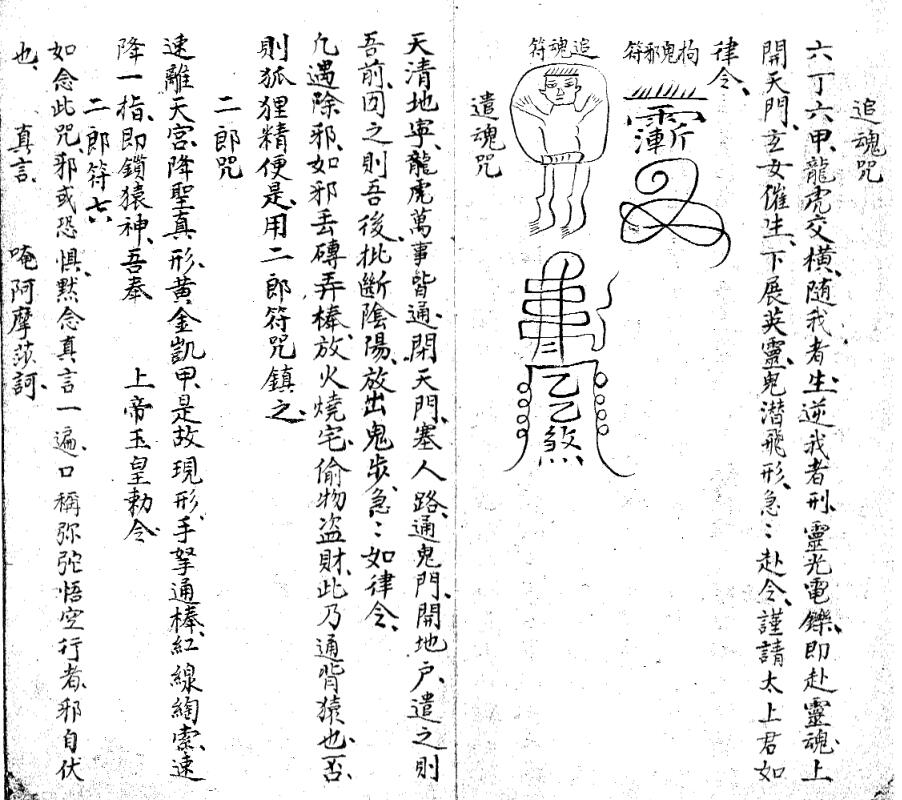 追魂咒
六丁六甲、龍虎交橫、随我者生、逆我者刑、靈光電鑠、即赴靈魂、上
開天門、玄女催生、下展英靈、鬼潜飛形、急〻赴令、謹請太上君如
律令、
拘鬼邪符
追魂符
遣魂咒
天清地寧、龍虎萬事皆通、閉天門、塞人路、通鬼門、開地户、遣之則
吾前、回之則吾後、批斷陰陽、放出鬼步、急〻如律令、
凢遇除邪、如邪丢磚弄棒、放火燒宅、偷物盗財、此乃通背猿也、否
則狐狸精便是、用二郎符咒鎮之、
二郎咒
速離天宮、降聖真形、黄金凱甲、是故現形、手拏通棒、紅線綯索、速
降一指、即鎖猿神、吾奉 上帝玉皇勅令
二郎符七八
如念此咒、邪或恐惧、黙念真言一遍、口稱弥陀悟空行者、邪自伏
也、 真言、 唵阿摩莎訶、